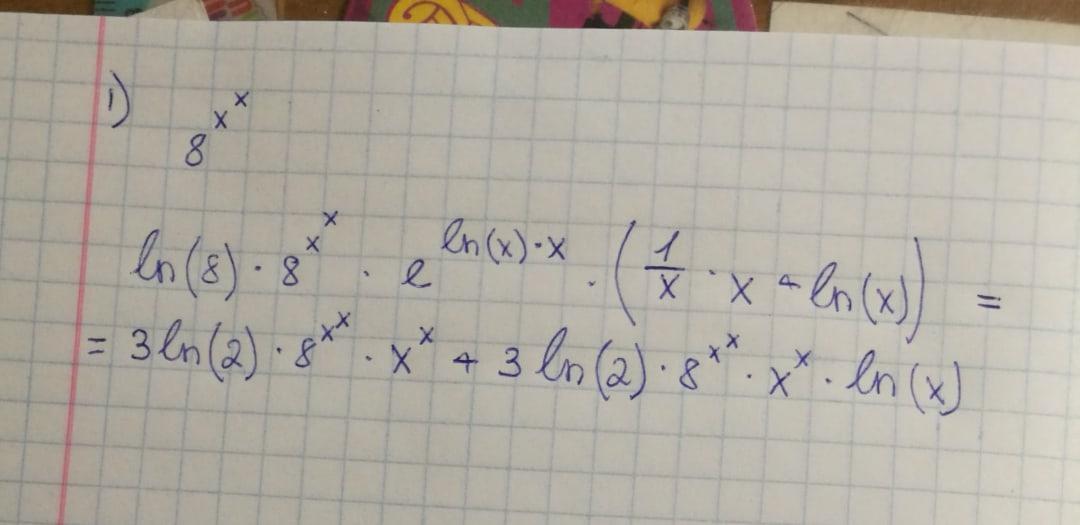 1) 8^{x^x}
ln(8) · 8^{x^x} · e^{ln(x)·x} · (1/x · x + ln(x)) =
= 3 ln(2) · 8^{x^x} · x^x + 3 ln(2) · 8^{x^x} · x^x · ln(x)